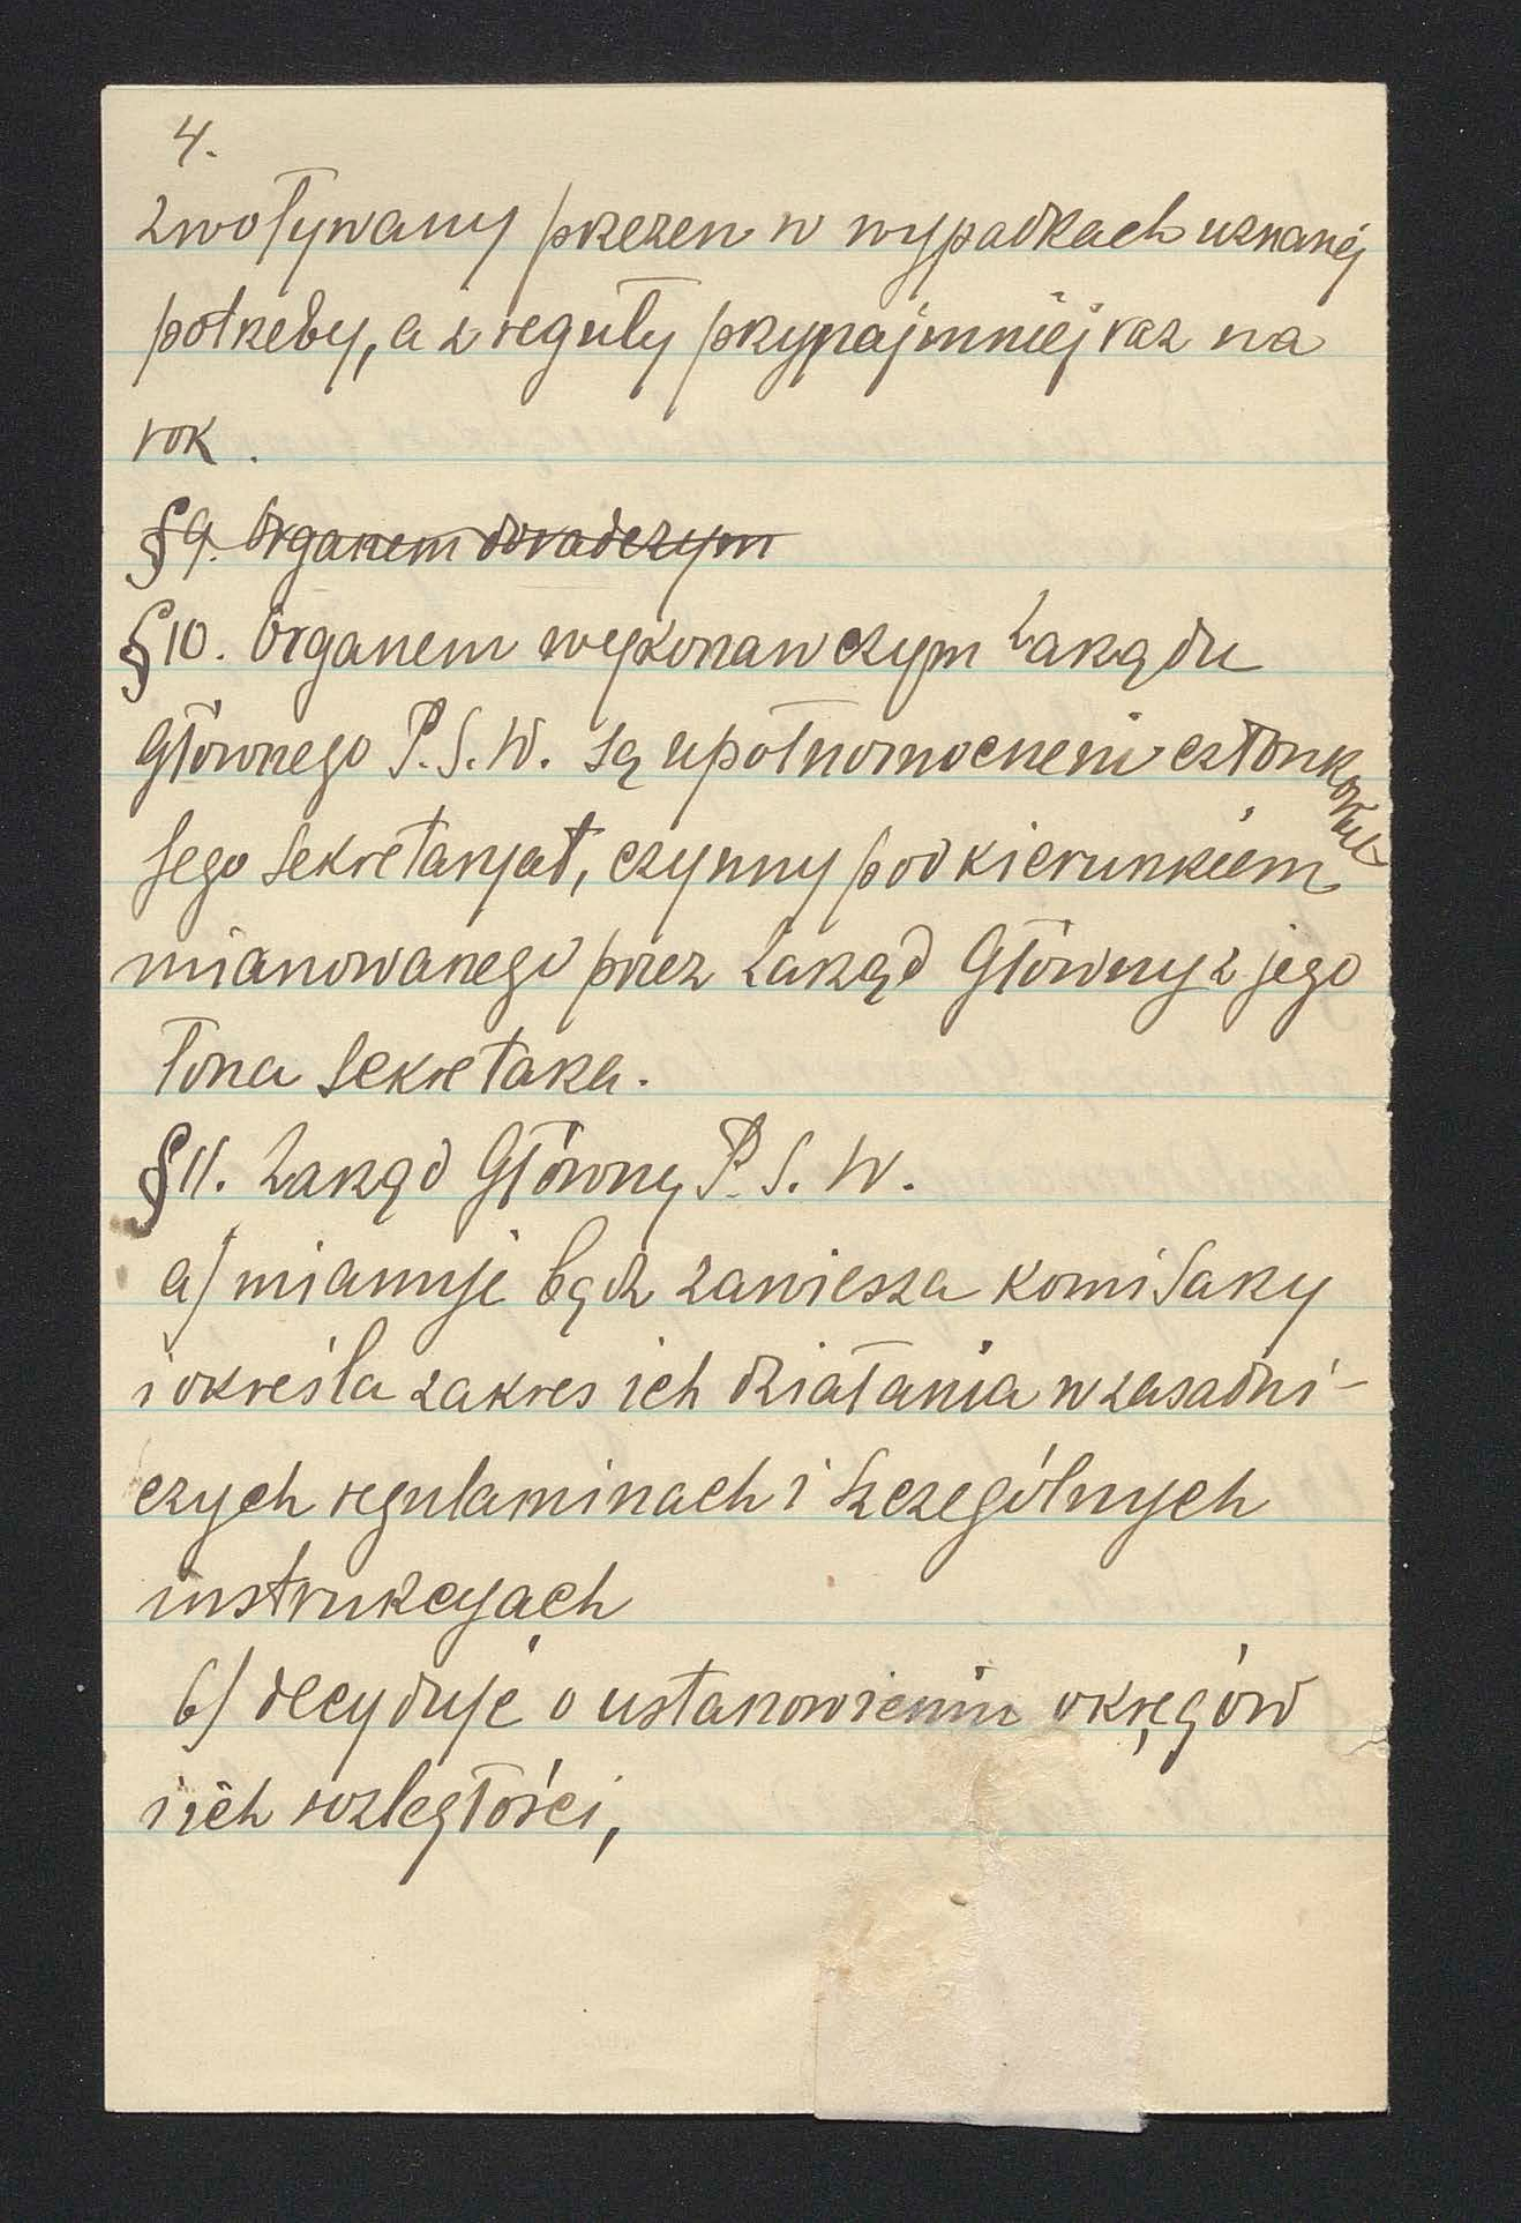 4.
zwoływany przezen w wypadkach uznanéj
potrzeby, a z reguły przynajmniéj raz na
rok.
§ 9. Organem doradczym
§ 10. Organem wykonawczym Zarządu
Głównego P. S. W. są upełnomocneni członkowie
Jego Sekretaryat, czynny pod kierunkiem
mianowanego przez Zarząd Główny z jego
łona Sekretarza.
§ 11. Zarząd Główny P. S. W.
a) mianuje bądz zawiesza komisarzy
i okresla zakres ich działania w zasadni-
czych regulaminach i szczególnych
instrukcyjach
b) decyduje o ustanowieniu okręgów
i ich rozległości,